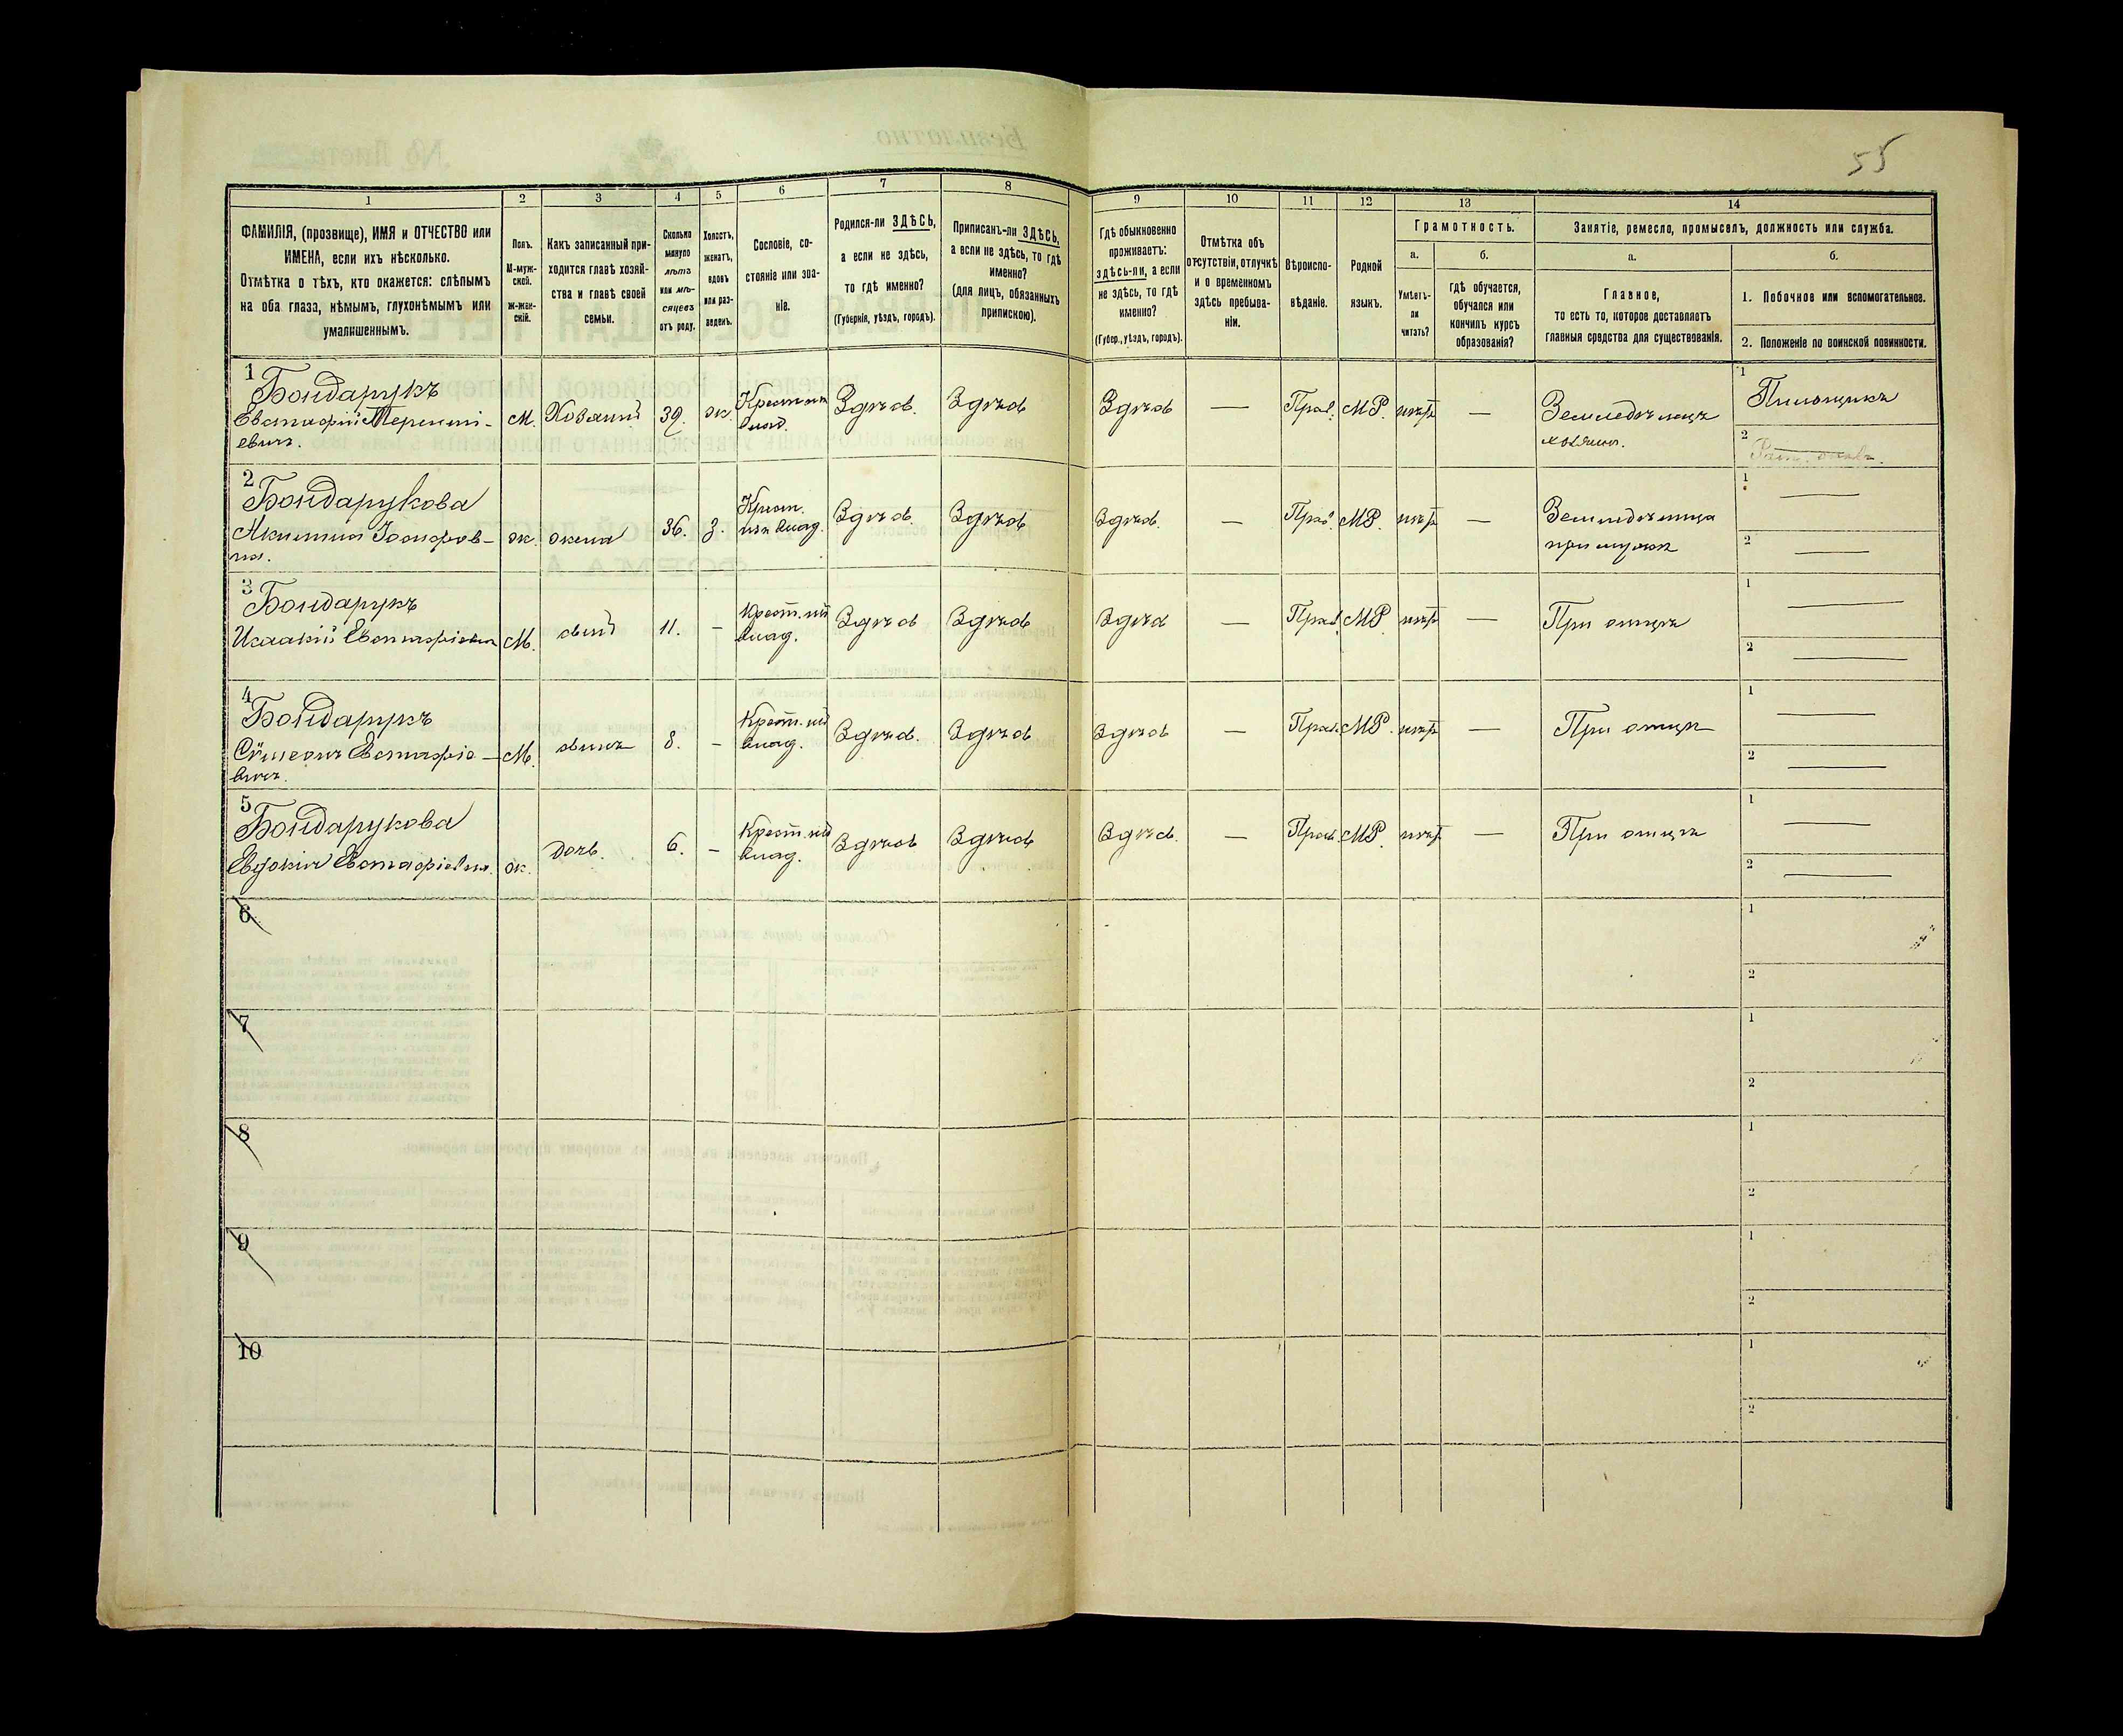 55
1 2 3 4 5 6 7 8 9 10 11 12 13 14
ФАМИЛІЯ, (прозвище), ИМЯ и ОТЧЕСТВО или
ИМЕНА, если ихъ нѣсколько.
Отмѣтка о тѣхъ, кто окажется: слѣпымъ
на оба глаза, нѣмымъ, глухонѣмымъ или
умалишеннымъ.
Полъ.
М-муж-
ской.
Ж-жен-
скій.
Какъ записанный при-
ходится главѣ хозяй-
ства и главѣ своей
семьи.
Сколько
минуло
лѣтъ
или мѣ-
сяцевъ
отъ роду.
Холостъ,
женатъ,
вдовъ
или раз-
веденъ.
Сословіе, со-
стояніе или зва-
ніе.
Родился-ли ЗДѢСЬ,
а если не здѣсь,
то гдѣ именно?
(Губернія, уѣздъ, городъ).
Приписанъ-ли ЗДѢСЬ,
а если не здѣсь, то гдѣ
именно?
(для лицъ, обязанныхъ
припискою).
Гдѣ обыкновенно
проживаетъ:
здѣсь-ли, а если
не здѣсь, то гдѣ
именно?
(Губер., уѣздъ, городъ).
Отмѣтка объ
отсутствіи, отлучкѣ
и о временномъ
здѣсь пребыва-
ніи.
Вѣроиспо-
вѣданіе.
Родной
языкъ.
Грамотность.
а.
Умѣетъ-
ли
читать?
б.
гдѣ обучается,
обучался или
кончилъ курсъ
образованія?
Занятіе, ремесло, промыселъ, должность или служба.
а.
Главное,
то есть то, которое доставляетъ
главныя средства для существованія.
б.
1. Побочное или вспомогательное.
2. Положеніе по воинской повинности.
1
Бондарукъ
Евстафій Теренті-
евичъ.
М. Хозяинъ 39. ж. Здѣсь. Здѣсь Здѣсь — Прав. МР. нѣтъ — Земледѣлецъ
хозяинъ.
1
2
2
Бондарукова
ж. жена 36. З. Крест.
изъ влад. Здѣсь. Здѣсь Здѣсь. — Прав. МР. нѣтъ —
при мужѣ
1 —
2 —
3
Бондарукъ
Исаакій Евстафіевич
М. сынъ 11. — Крест. из
влад. Здѣсь Здѣсь Здѣсь — Прав. МР нѣтъ — При отцѣ
1 —
2 —
4
Бондарукъ
Сѵмеонъ Евстафіе-
вичъ.
М. сынъ 8. — Крест. из
влад. Здѣсь. Здѣсь Здѣсь — Прав. МР. нѣтъ — При отцѣ
1 —
2 —
5
Бондарукова
Евдокія Евстафіевна.
ж. дочь. 6. — Крест. из
влад. Здѣсь Здѣсь Здѣсь. — Прав. МР. нѣтъ — При отцѣ
1 —
2 —
6
1
2
7
1
2
8
1
2
9
1
2
10
1
2